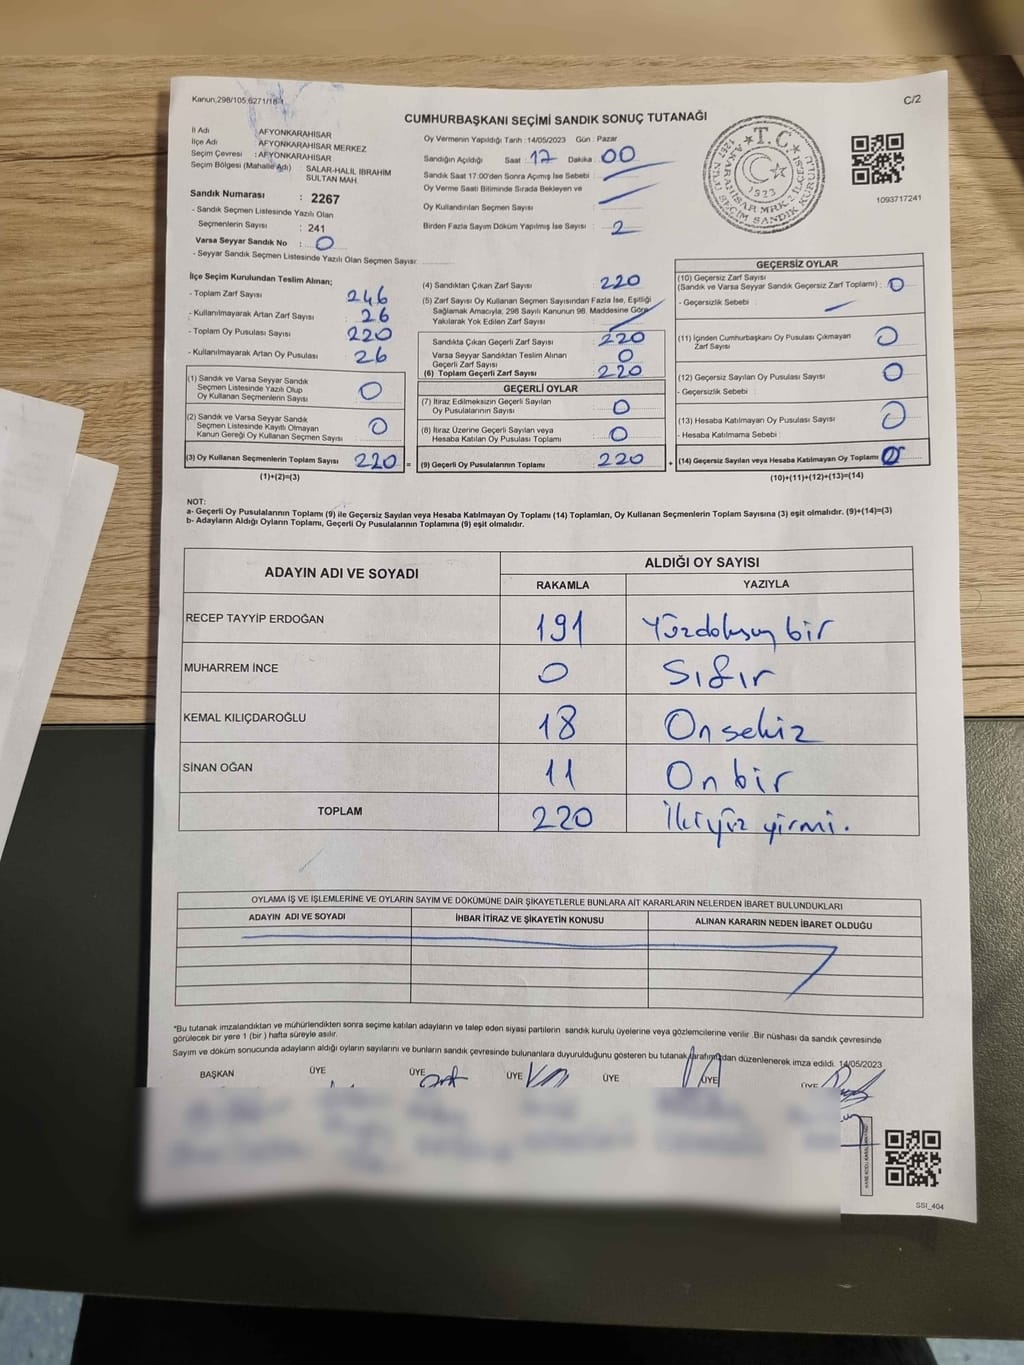 Kanun,298/105;6271/18-1
C/2
CUMHURBAŞKANI SEÇİMİ SANDIK SONUÇ TUTANAĞI
İl Adı : AFYONKARAHİSAR
İlçe Adı : AFYONKARAHİSAR MERKEZ
Seçim Çevresi : AFYONKARAHİSAR
Seçim Bölgesi (Mahalle Adı) : SALAR-HALİL İBRAHİM SULTAN MAH.
Sandık Numarası : 2267
- Sandık Seçmen Listesinde Yazılı Olan
Seçmenlerin Sayısı : 241
Varsa Seyyar Sandık No : 0
- Seyyar Sandık Seçmen Listesinde Yazılı Olan Seçmen Sayısı:
Oy Vermenin Yapıldığı Tarih :14/05/2023 Gün : Pazar
Sandığın Açıldığı Saat : 17 Dakika : 00
Sandık Saat 17:00'den Sonra Açımış İse Sebebi :
Oy Verme Saati Bitiminde Sırada Bekleyen ve
Oy Kullandırılan Seçmen Sayısı :
Birden Fazla Sayım Döküm Yapılmış İse Sayısı : 2
T.C.
1923
1093717241
İlçe Seçim Kurulundan Teslim Alınan;
- Toplam Zarf Sayısı : 246
- Kullanılmayarak Artan Zarf Sayısı : 26
- Toplam Oy Pusulası Sayısı : 220
- Kullanılmayarak Artan Oy Pusulası : 26
(1) Sandık ve Varsa Seyyar Sandık
Seçmen Listesinde Yazılı Olup
Oy Kullanan Seçmenlerin Sayısı : 0
(2) Sandık ve Varsa Seyyar Sandık
Seçmen Listesinde Kayıtlı Olmayan
Kanun Gereği Oy Kullanan Seçmen Sayısı : 0
(3) Oy Kullanan Seçmenlerin Toplam Sayısı : 220 =
(1)+(2)=(3)
(4) Sandıktan Çıkan Zarf Sayısı : 220
(5) Zarf Sayısı Oy Kullanan Seçmen Sayısından Fazla İse, Eşitliği
Sağlamak Amacıyla; 298 Sayılı Kanunun 98. Maddesine Göre
Yakılarak Yok Edilen Zarf Sayısı :
Sandıkta Çıkan Geçerli Zarf Sayısı : 220
Varsa Seyyar Sandıktan Teslim Alınan
Geçerli Zarf Sayısı : 0
(6) Toplam Geçerli Zarf Sayısı : 220
GEÇERLİ OYLAR
(7) İtiraz Edilmeksizin Geçerli Sayılan
Oy Pusulalarının Sayısı : 0
(8) İtiraz Üzerine Geçerli Sayılan veya
Hesaba Katılan Oy Pusulası Toplamı : 0
(9) Geçerli Oy Pusulalarının Toplamı : 220 +
GEÇERSİZ OYLAR
(10) Geçersiz Zarf Sayısı
(Sandık ve Varsa Seyyar Sandık Geçersiz Zarf Toplamı) : 0
- Geçersizlik Sebebi :
(11) İçinden Cumhurbaşkanı Oy Pusulası Çıkmayan
Zarf Sayısı : 0
(12) Geçersiz Sayılan Oy Pusulası Sayısı : 0
- Geçersizlik Sebebi :
(13) Hesaba Katılmayan Oy Pusulası Sayısı : 0
- Hesaba Katılmama Sebebi :
(14) Geçersiz Sayılan veya Hesaba Katılmayan Oy Toplamı : 0
(10)+(11)+(12)+(13)=(14)
NOT:
a- Geçerli Oy Pusulalarının Toplamı (9) ile Geçersiz Sayılan veya Hesaba Katılmayan Oy Toplamı (14) Toplamları, Oy Kullanan Seçmenlerin Toplam Sayısına (3) eşit olmalıdır. (9)+(14)=(3)
b- Adayların Aldığı Oyların Toplamı, Geçerli Oy Pusulalarının Toplamına (9) eşit olmalıdır.
ADAYIN ADI VE SOYADI ALDIĞI OY SAYISI
RAKAMLA YAZIYLA
RECEP TAYYİP ERDOĞAN 191 Yüzdoksan bir
MUHARREM İNCE 0 Sıfır
KEMAL KILIÇDAROĞLU 18 On sekiz
SİNAN OĞAN 11 On bir
TOPLAM 220 İkiyüz yirmi.
OYLAMA İŞ VE İŞLEMLERİNE VE OYLARIN SAYIM VE DÖKÜMÜNE DAİR ŞİKAYETLERLE BUNLARA AİT KARARLARIN NELERDEN İBARET BULUNDUKLARI
ADAYIN ADI VE SOYADI İHBAR İTİRAZ VE ŞİKAYETİN KONUSU ALINAN KARARIN NEDEN İBARET OLDUĞU
*Bu tutanak imzalandıktan ve mühürlendikten sonra seçime katılan adayların ve talep eden siyasi partilerin sandık kurulu üyelerine veya gözlemcilerine verilir. Bir nüshası da sandık çevresinde
görülecek bir yere 1 (bir ) hafta süreyle asılır.
Sayım ve döküm sonucunda adayların aldığı oyların sayılarını ve bunların sandık çevresinde bulunanlara duyurulduğunu gösteren bu tutanak tarafımızdan düzenlenerek imza edildi. 14/05/2023
BAŞKAN ÜYE ÜYE ÜYE ÜYE ÜYE ÜYE
SSI_404